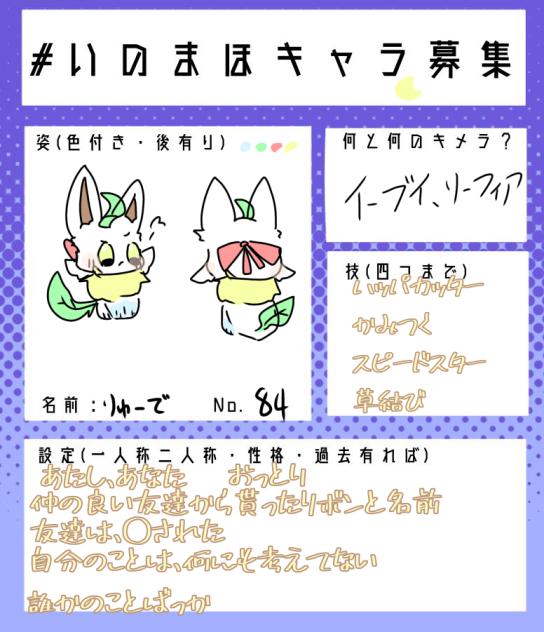 #いのまほキャラ募集
姿(色付き・後有り)
何と何のキメラ?
イーブイ、リーフィア
技(四つまで)
ハッパカッター
かみつく
スピードスター
草結び
名前:りゅーで No. 84
設定(一人称二人称・性格・過去有れば)
あたし、あなた おっとり
仲の良い友達から貰ったリボンと名前
友達は、〇された
自分のことは、何にも考えてない
誰かのことばっか